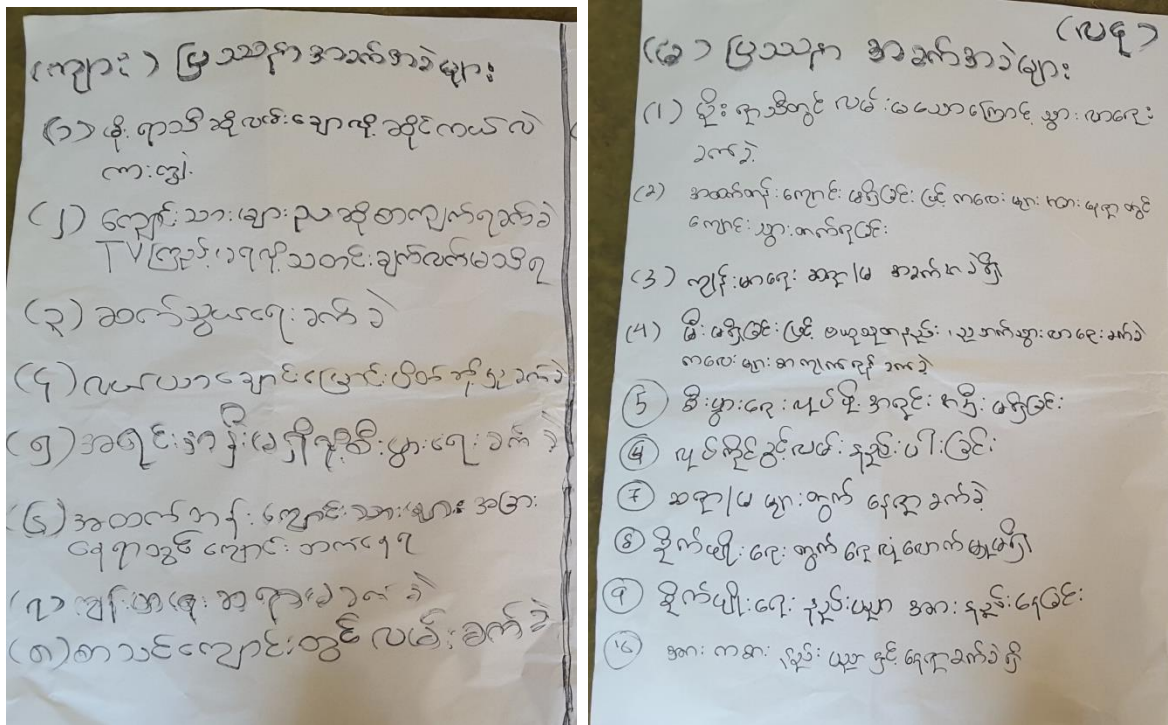 (ကျား) ပြဿနာအခက်အခဲများ
(၁) မိုးရာသီဆိုလမ်းချောလို့ ဆိုင်ကယ်လဲ
ကားကျွံ.
(၂) ကျောင်းသားများညဆိုစာကျက်ရခက်ခဲ
TVကြည့်မရလို့သတင်းချက်လက်မသိရ
(၃) ဆက်သွယ်ရေးခက်ခဲ
(၄) လယ်ယာချောင်းမြောင်းပိတ်ဆို့မှုခက်ခဲ
(၅) အရင်းအနှီးမရှိလို့စီးပွားရေးခက်ခဲ
(၆) အထက်တန်းကျောင်းသားများ အခြား
နေရာတွင်ကျောင်းတက်နေရ
(၇) ကျန်းမာရေးဆရာမခက်ခဲ
(၈) စာသင်ကျောင်းတွင် လမ်းခက်ခဲ
(လဒု)
(မ) ပြဿနာ အခက်အခဲများ
(1) မိုးရာသီတွင် လမ်းမချောကြောင့် သွားလာရေး
ခက်ခဲ.
(2) အထက်တန်းကျောင်းမရှိခြင်းဖြင့် ကလေးများ နေရာတွင်
ကျောင်းသွားတက်ရခြင်း
(3) ကျန်းမာရေး ဆရာ/မ အခက်အခဲရှိ
(4) မီးမရှိခြင်းဖြင့် ညဘက်သွားလာရေးခက်ခဲ
ကလေးများစာကျက်ရန် ခက်ခဲ
(5) စီးပွားရေးလုပ်ဖို့ အရင်းအနှီးမရှိခြင်း
လုပ်ကိုင်ခွင့်လမ်းနည်းပါးခြင်း
(7) ဆရာ/မများတွက် နေရာခက်ခဲ
(8) စိုက်ပျိုးရေးတွက် ရေလုံလောက်မှုမရှိ
(9) စိုက်ပျိုးရေးနည်းပညာ အားနည်းနေခြင်း
(10) အားကစားနည်းပညာနှင့်နေရာခက်ခဲရှိ